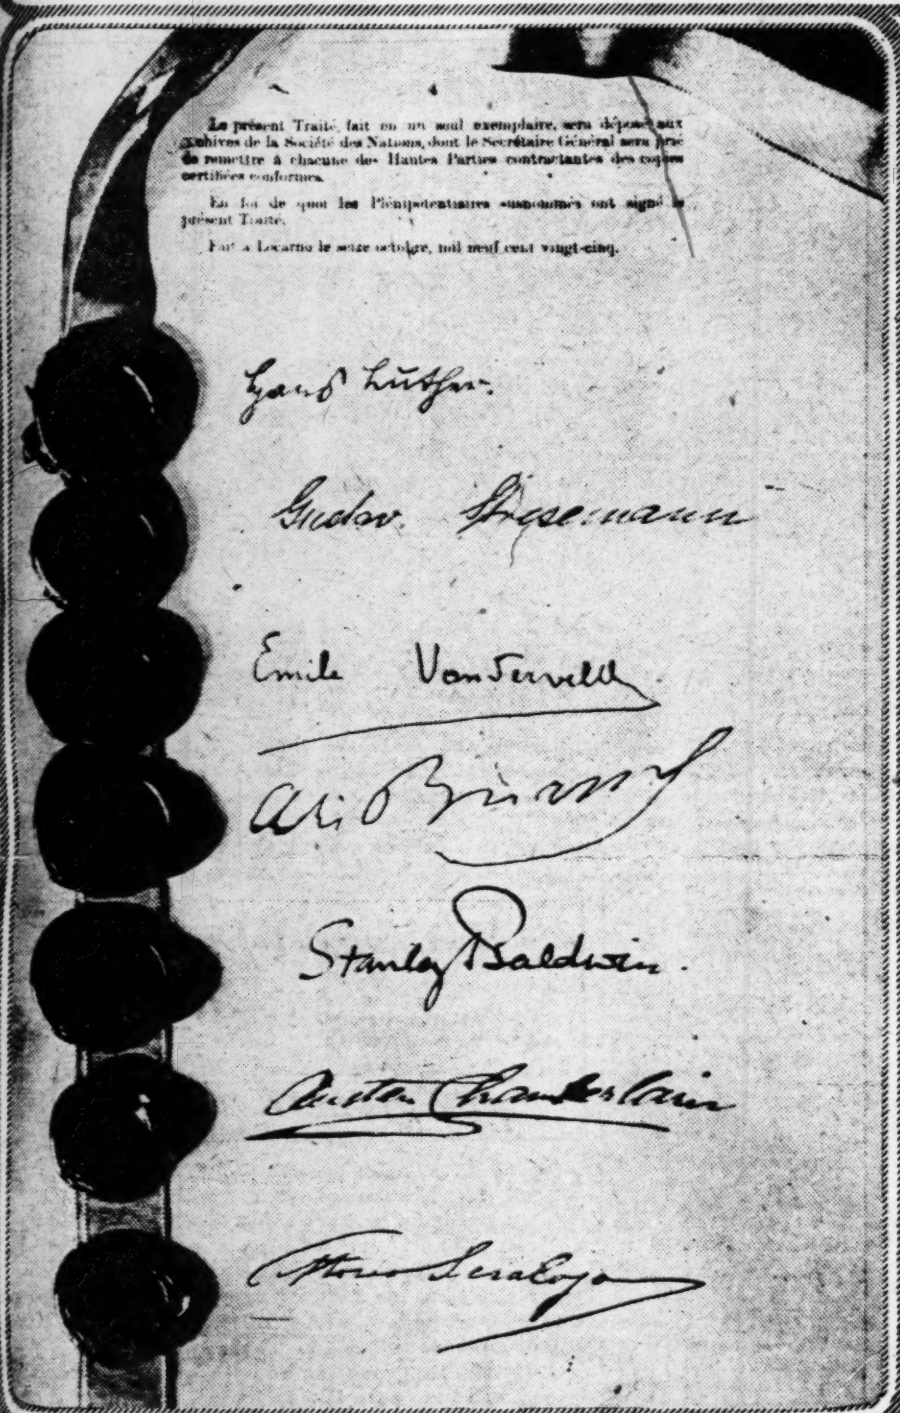 Le présent Traité, fait en un seul exemplaire, sera déposé aux
Archives de la Société des Nations, dont le Secrétaire Général sera prié
de remettre à chacune des Hautes Parties contractantes des copies
certifiées conformes.
En foi de quoi les Plénipotentiaires susnommés ont signé le
présent Traité.
Fait à Locarno le seize octobre, mil neuf cent vingt-cinq.
Hans Luther.
Gustav Stresemann
Emile Vandervelde
Ari Briand
Stanley Baldwin.
Austen Chamberlain
Vittorio Scialoja